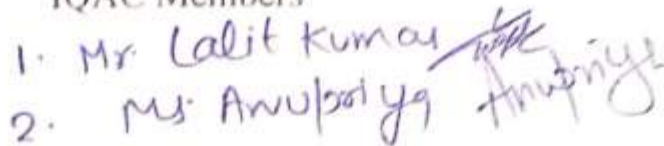 IQAC Members
1. Mr. Lalit Kumar
2. Ms. Anupriya Anupriya